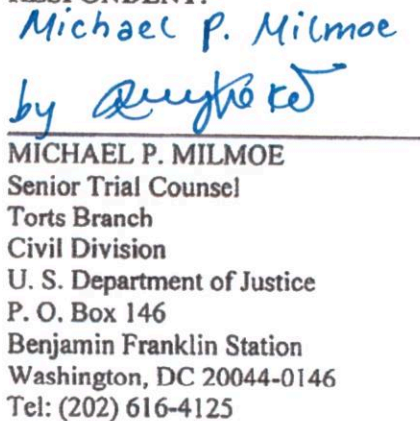 RESPONDENT:
Michael P. Milmoe
by
MICHAEL P. MILMOE
Senior Trial Counsel
Torts Branch
Civil Division
U. S. Department of Justice
P. O. Box 146
Benjamin Franklin Station
Washington, DC 20044-0146
Tel: (202) 616-4125